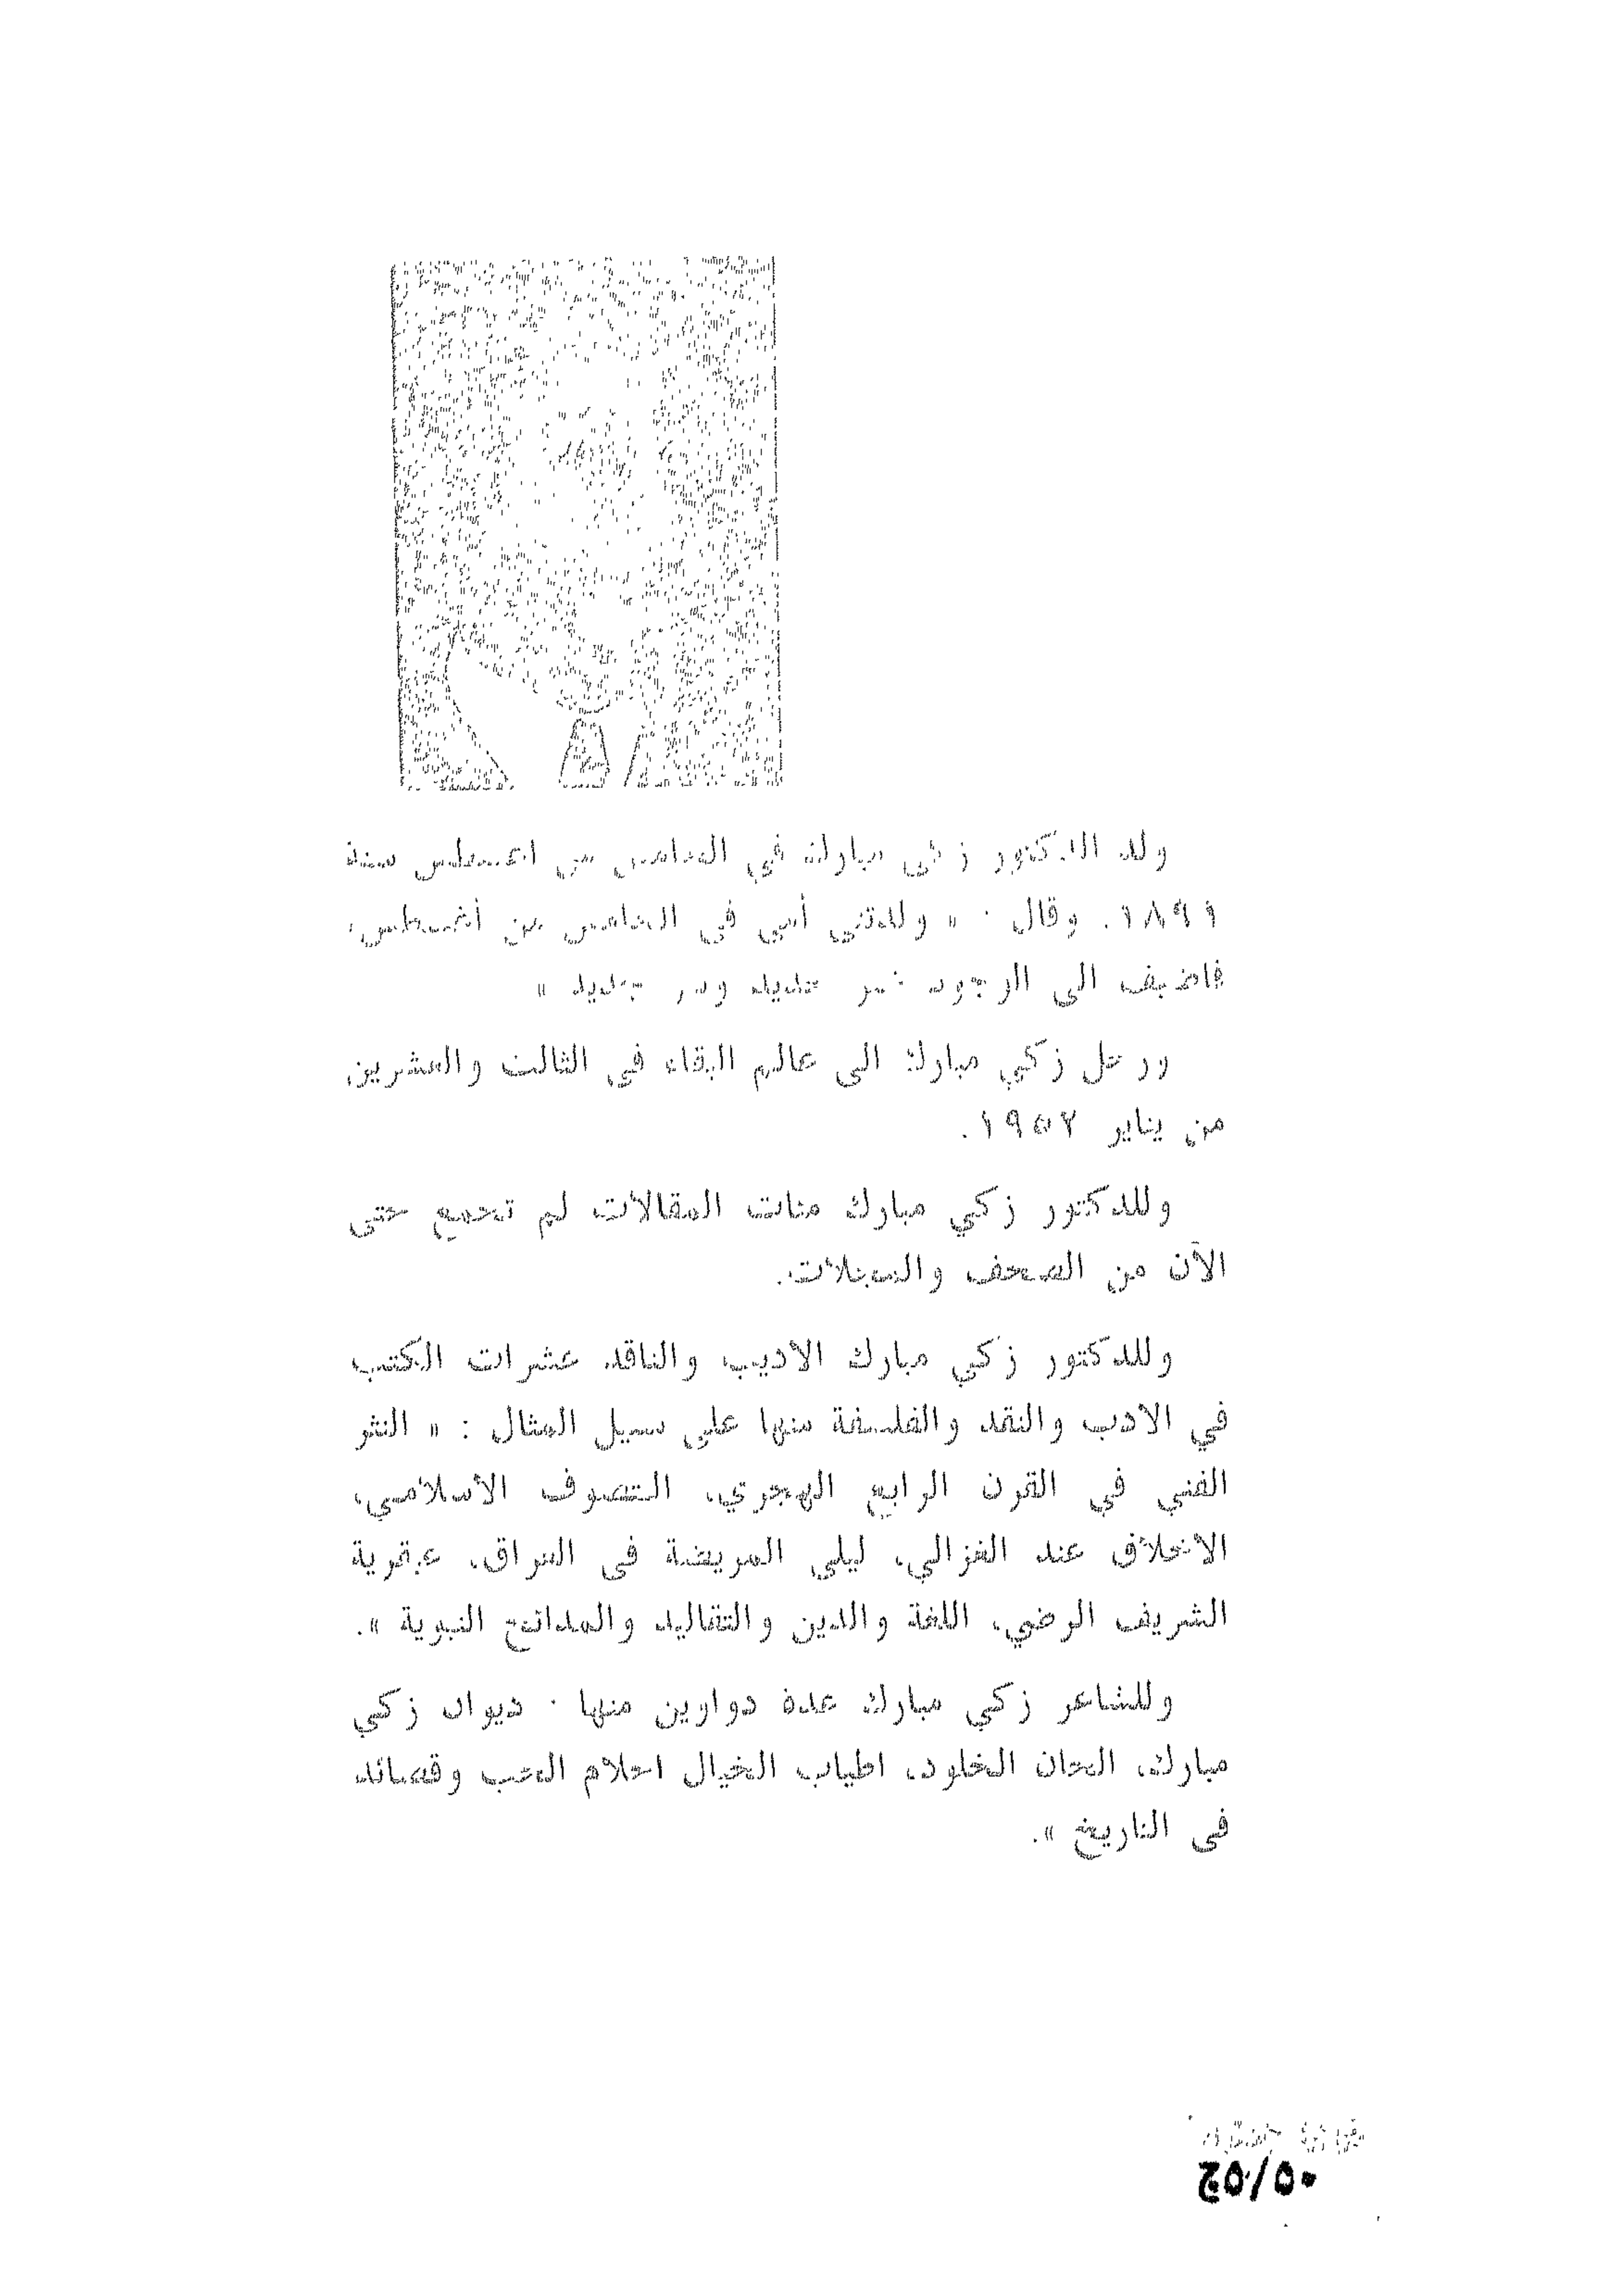 ولد الدكتور زكي مبارك في الخامس من اغسطس سنة
١٨٩١. وقال : « ولدتني أمي في الخامس من أغسطس،
فاضيف الى الوجود جديد وسر جديد »
ورحل زكي مبارك الى عالم البقاء في الثالث والعشرين
من يناير ١٩٥٢.
وللدكتور زكي مبارك مئات المقالات لم تجمع حتى
الآن من الصحف والمجلات.
وللدكتور زكي مبارك الأديب والناقد عشرات الكتب
في الادب والنقد والفلسفة منها على سبيل المثال : « النثر
الفني في القرن الرابع الهجري، التصوف الأسلامي،
الأخلاق عند الغزالي، ليلى المريضة في العراق، عبقرية
الشريف الرضي، اللغة والدين والتقاليد والمدائح النبوية ».
وللشاعر زكي مبارك عدة دواوين منها : ديوان زكي
مبارك، الحان الخلود، اطياب الخيال احلام الحب وقصائد
في التاريخ ».